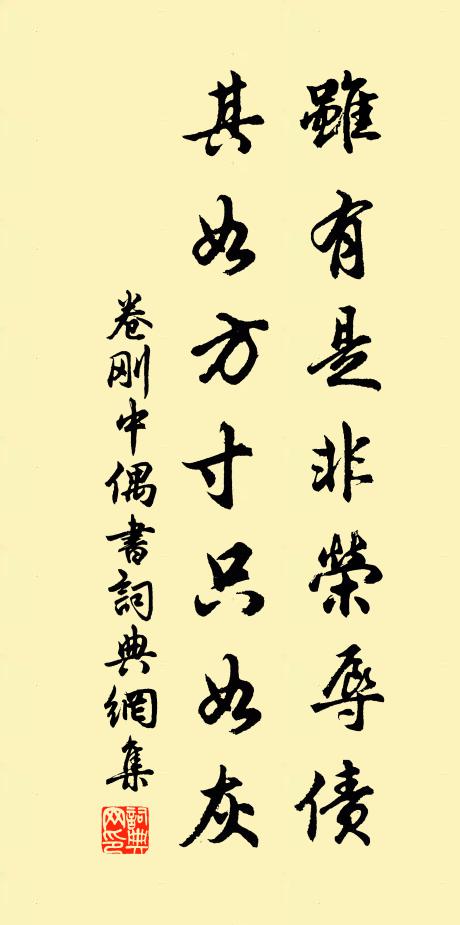 雖有是非榮辱債
其如方寸只如灰
卷剛中偶書詞典網集
詞典网印